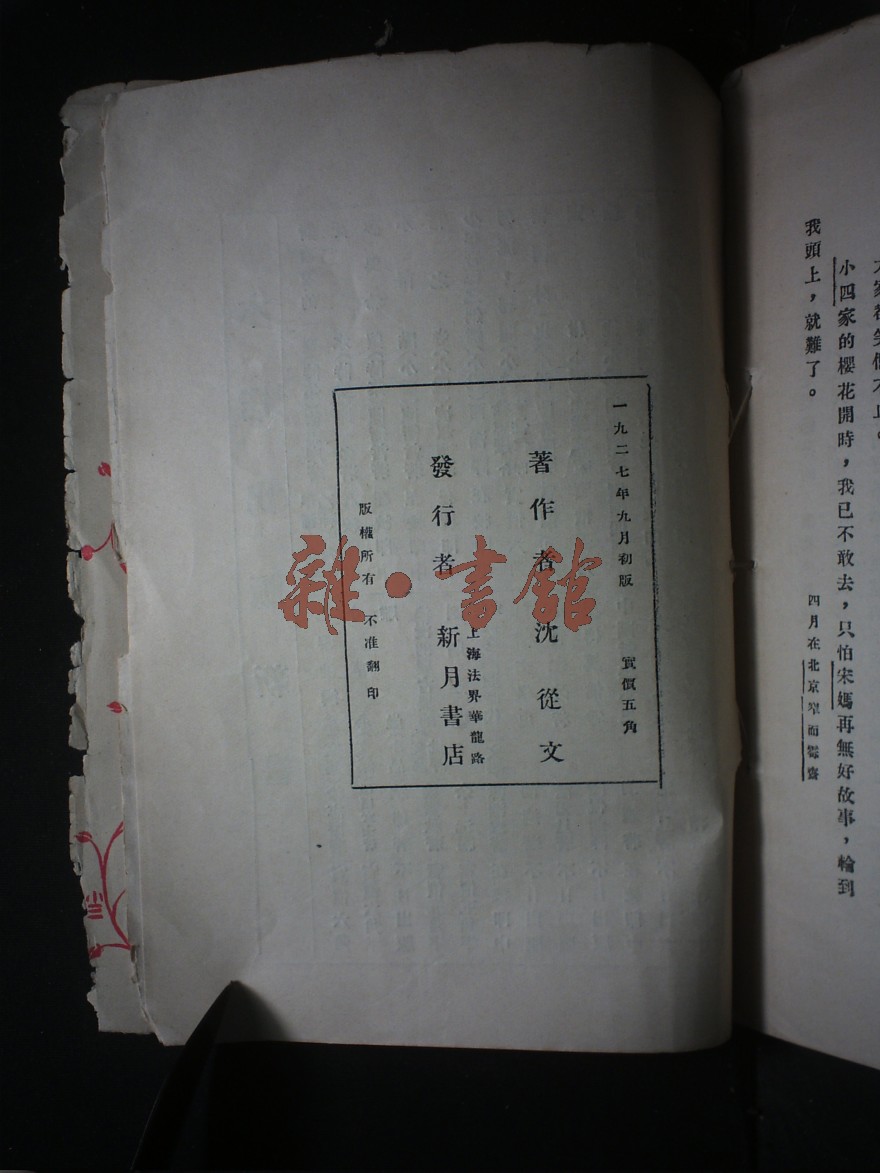 小四家的櫻花開時，我已不敢去，只怕宋媽再無好故事，輪到
我頭上，就難了。
四月在北京窄而霉齋
一九二七年九月初版　實價五角
著作者　沈從文
上海法界華龍路
發行者　新月書店
版權所有　不准翻印
雜·書館